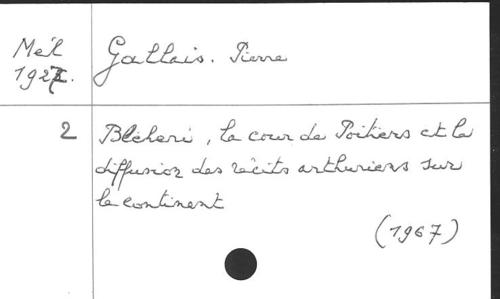 Mél Gallais. Pierre
192
2 Bléheri, la cour de Poitiers et la
diffusion des récits arthuriens sur
le continent
(1967)